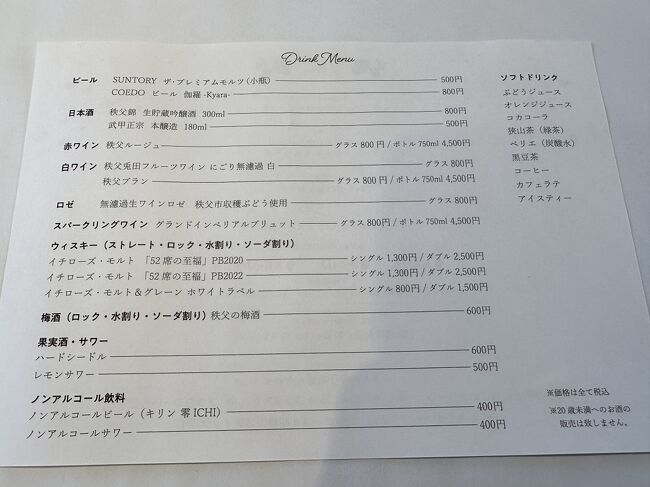 Drink Menu
ビール SUNTORY ザ・プレミアムモルツ(小瓶) 500円
COEDO ビール 伽羅 -Kyara- 800円
日本酒 秩父錦 生貯蔵吟醸酒 300ml 800円
武甲正宗 本醸造 180ml 500円
赤ワイン 秩父ルージュ グラス 800 円 / ボトル 750ml 4,500円
白ワイン 秩父兎田フルーツワイン にごり無濾過 白 グラス 800円
秩父ブラン グラス 800円 / ボトル 750ml 4,500円
ロゼ 無濾過生ワインロゼ 秩父市収穫ぶどう使用 グラス 800円
スパークリングワイン グランドインペリアルブリュット グラス 800円 / ボトル 750ml 4,500円
ウィスキー(ストレート・ロック・水割り・ソーダ割り)
イチローズ・モルト 「52 席の至福」PB2020 シングル 1,300円 / ダブル 2,500円
イチローズ・モルト 「52 席の至福」PB2022 シングル 1,300円 / ダブル 2,500円
イチローズ・モルト＆グレーン ホワイトラベル シングル 800円 / ダブル 1,500円
梅酒(ロック・水割り・ソーダ割り)秩父の梅酒 600円
果実酒・サワー
ハードシードル 600円
レモンサワー 500円
ノンアルコール飲料
ノンアルコールビール(キリン 零 ICHI) 400円
ノンアルコールサワー 400円
ソフトドリンク
ぶどうジュース
オレンジジュース
コカコーラ
狭山茶(緑茶)
ペリエ(炭酸水)
黒豆茶
コーヒー
カフェラテ
アイスティー
※価格は全て税込
※20 歳未満へのお酒の
販売は致しません。